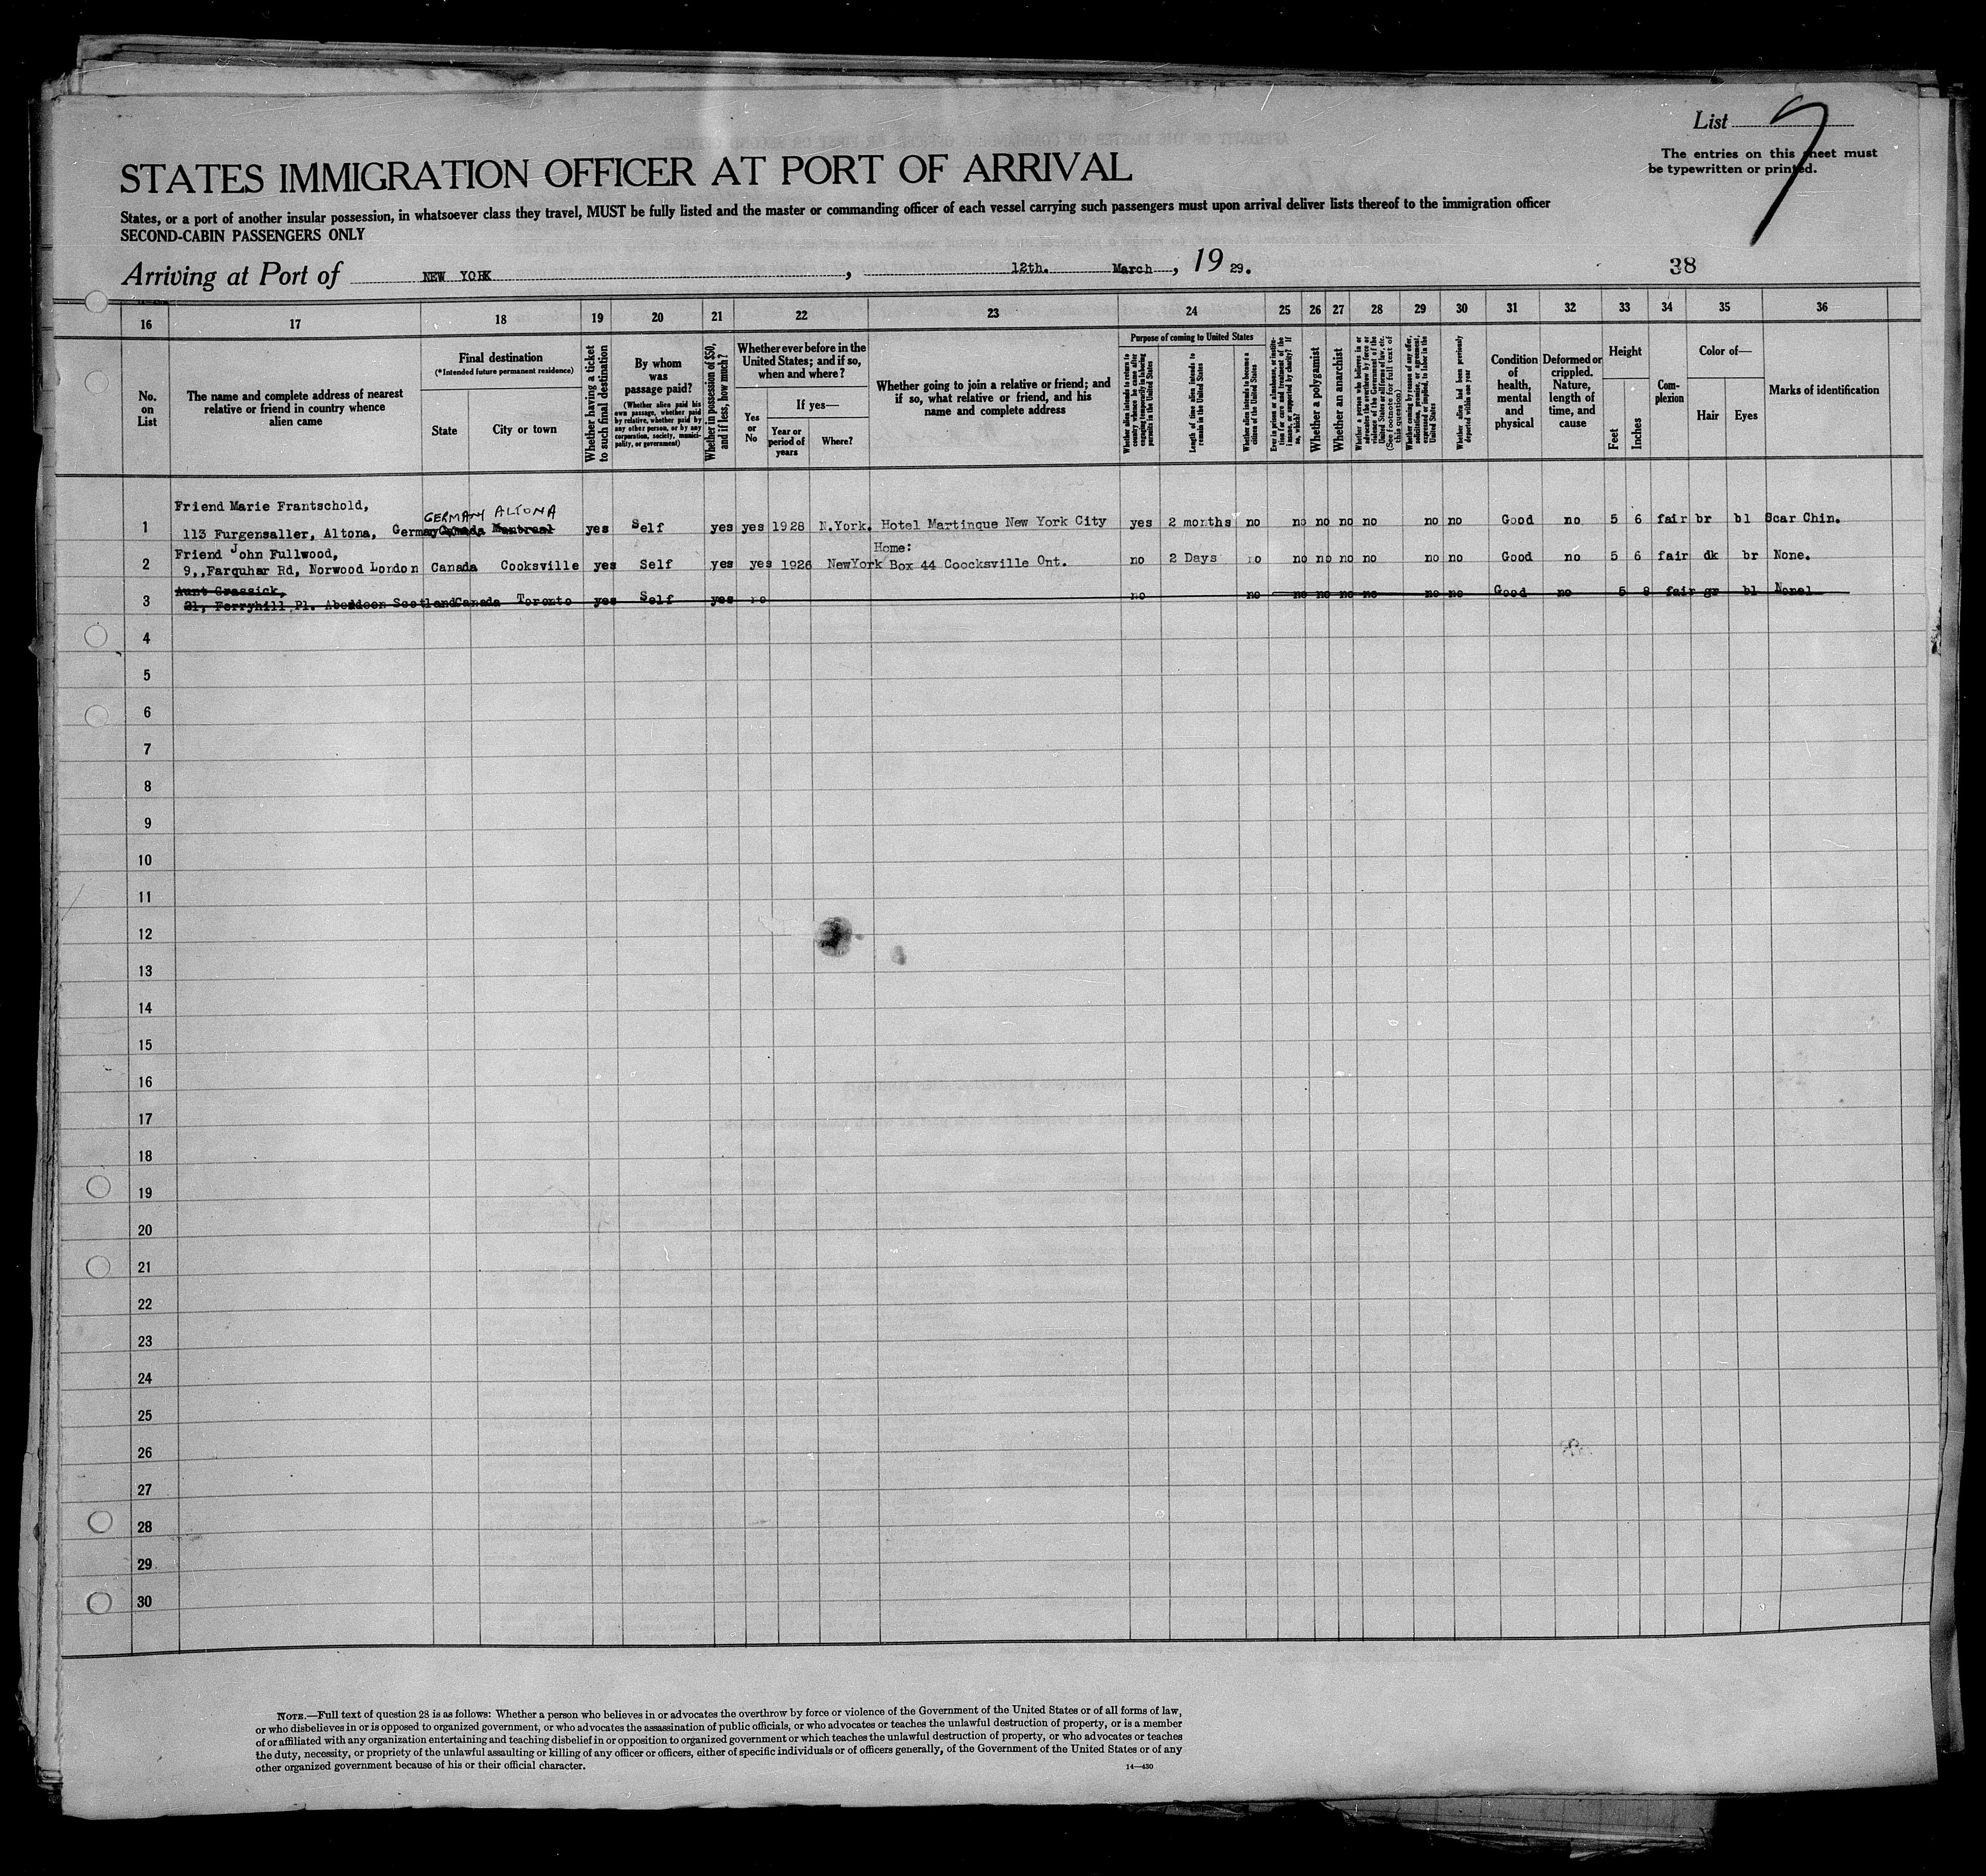 List 9
The entries on this sheet must
be typewritten or printed.
STATES IMMIGRATION OFFICER AT PORT OF ARRIVAL
States, or a port of another insular possession, in whatsoever class they travel, MUST be fully listed and the master or commanding officer of each vessel carrying such passengers must upon arrival deliver lists thereof to the immigration officer
SECOND-CABIN PASSENGERS ONLY
Arriving at Port of NEW YORK, 12th. March, 19 29.
38
16 17 18 19 20 21 22 23 24 25 26 27 28 29 30 31 32 33 34 35 36
No. on List
The name and complete address of nearest
relative or friend in country whence
alien came
Final destination
(*Intended future permanent residence)
State
City or town
Whether having a ticket
to such final destination
By whom
was
passage paid?
(Whether alien paid his
own passage, whether paid
by relative, whether paid by
any other person, or by any
corporation, society, munici-
pality, or government)
Whether in possession of $50,
and if less, how much?
Whether ever before in the
United States; and if so,
when and where?
Yes
or
No
If yes—
Year or
period of
years
Where?
Whether going to join a relative or friend; and
if so, what relative or friend, and his
name and complete address
Purpose of coming to United States
Whether alien intends to return to
country whence he came after
engaging temporarily in laboring
pursuits in the United States
Length of time alien intends to
remain in the United States
Whether alien intends to become a
citizen of the United States
Ever in prison or almshouse, or institu-
tion for care and treatment of the
insane, or supported by charity? If
so, which?
Whether a polygamist
Whether an anarchist
Whether a person who believes in or
advocates the overthrow by force or
violence of the Government of the
United States or all forms of law, etc.
(See footnote for full text of
this question)
Whether coming by reason of any offer,
solicitation, promise, or agreement,
expressed or implied, to labor in the
United States
Whether alien had been previously
deported within one year
Condition
of
health,
mental
and
physical
Deformed or
crippled.
Nature,
length of
time, and
cause
Height
Feet
Inches
Com-
plexion
Color of—
Hair
Eyes
Marks of identification
Friend Marie Frantschold,
GERMANY ALTONA
1 113 Furgensaller, Altona, Germany Canada Montreal yes Self yes yes 1928 N.York. Hotel Martinque New York City yes 2 months no no no no no no no Good no 5 6 fair br bl Scar Chin.
Friend John Fullwood, Home:
2 9,,Farquhar Rd, Norwood London Canada Cooksville yes Self yes yes 1926 NewYork Box 44 Coocksville Ont. no 2 Days no no no no no no no Good no 5 6 fair dk br None.
Aunt Crassick,
3 21, Ferryhill Pl. Aberdeen Scotland Canada Toronto yes Self yes no no no no no no no no no Good no 5 8 fair gr bl None
4
5
6
7
8
9
10
11
12
13
14
15
16
17
18
19
20
21
22
23
24
25
26
27
28
29
30
NOTE.—Full text of question 28 is as follows: Whether a person who believes in or advocates the overthrow by force or violence of the Government of the United States or of all forms of law,
or who disbelieves in or is opposed to organized government, or who advocates the assassination of public officials, or who advocates or teaches the unlawful destruction of property, or is a member
of or affiliated with any organization entertaining and teaching disbelief in or opposition to organized government or which teaches the unlawful destruction of property, or who advocates or teaches
the duty, necessity, or propriety of the unlawful assaulting or killing of any officer or officers, either of specific individuals or of officers generally, of the Government of the United States or of any
other organized government because of his or their official character.
14—430